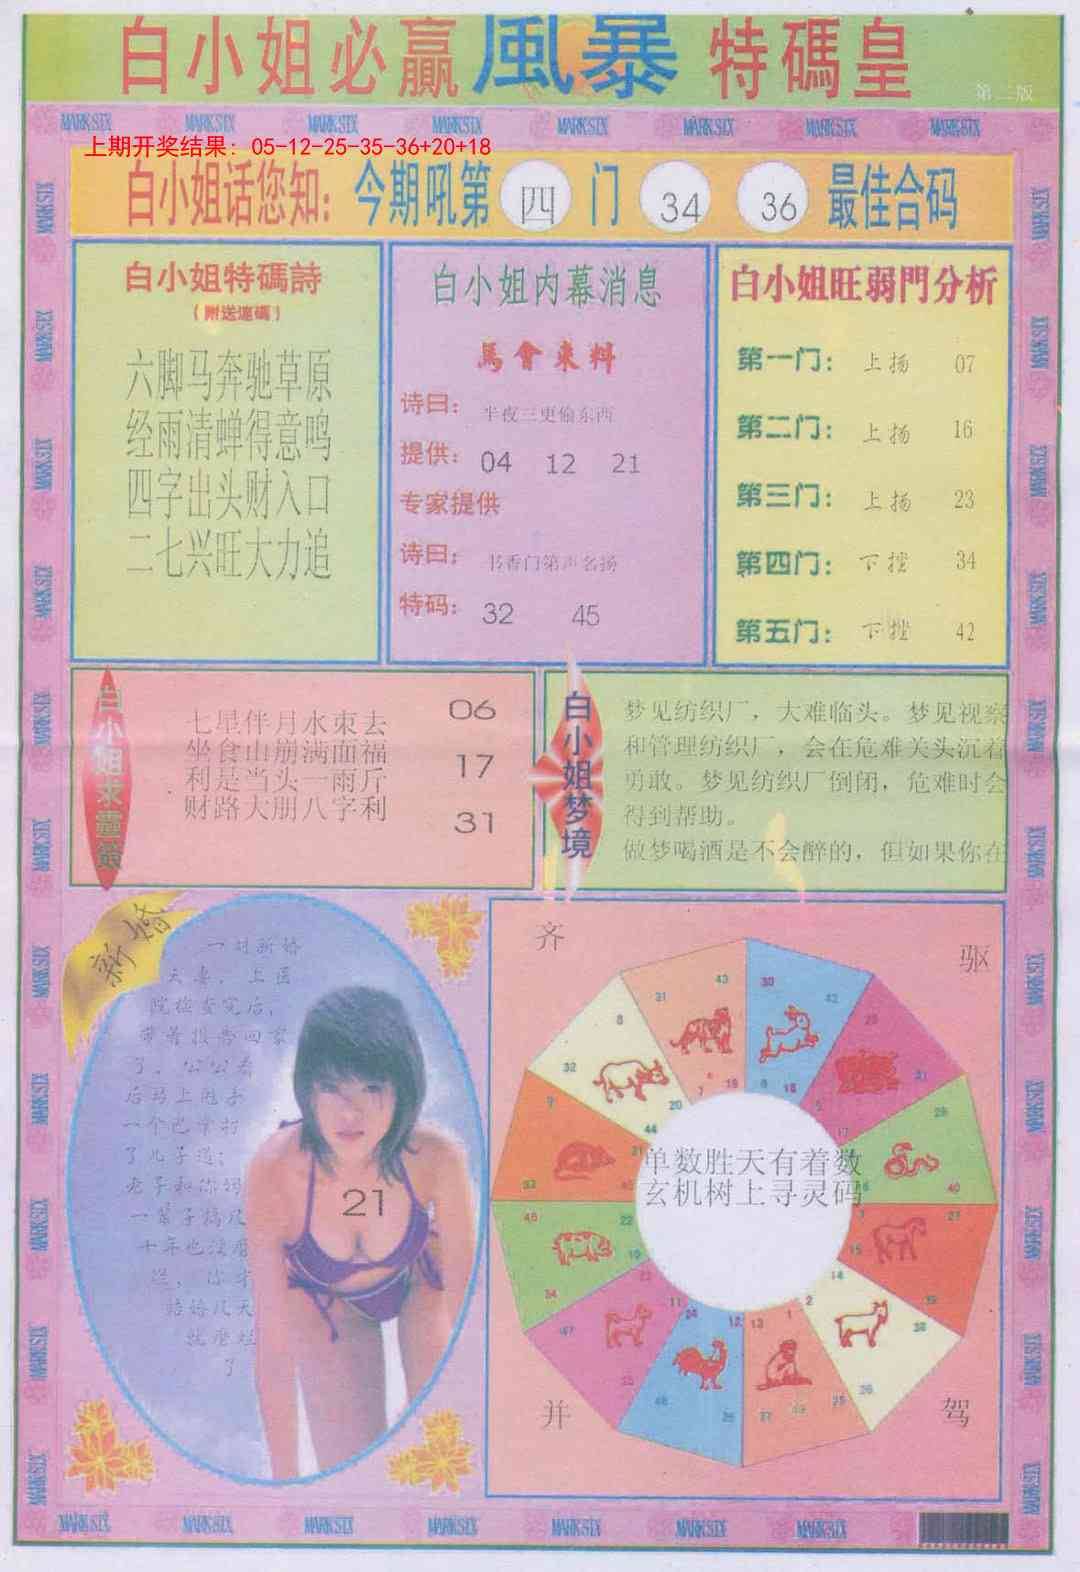 白小姐必赢風暴特碼皇
第二版
MARK SIX MARK SIX MARK SIX MARK SIX MARK SIX MARK SIX MARK SIX MARK SIX
上期开奖结果：05-12-25-35-36+20+18
白小姐话您知：今期吼第 四 门 34 36 最佳合码
白小姐特碼詩
（附送連碼）
六脚马奔驰草原
经雨清蝉得意鸣
四字出头财入口
二七兴旺大力追
白小姐内幕消息
馬會來料
诗曰：半夜三更偷东西
提供：04 12 21
专家提供
诗曰：书香门第声名扬
特码：32 45
白小姐旺弱門分析
第一门：上扬 07
第二门：上扬 16
第三门：上扬 23
第四门：下挫 34
第五门：下挫 42
白小姐求靈簽
七星伴月水東去
坐食山崩满面福
利是当头一雨斤
财路大朋八字利
06
17
31
白小姐梦境
梦见纺织厂，大难临头。梦见视察
和管理纺织厂，会在危难关头沉着
勇敢。梦见纺织厂倒闭，危难时会
得到帮助。
做梦喝酒是不会醉的，但如果你在
新婚
一对新婚
夫妻，上医
院检查完后，
带着报告回家
了，公公看
后马上甩手
一个巴掌打
了儿子道：
老子和你妈
一辈子搞几
十年也没磨
烂，你才
结婚几天
就磨烂
了
21
齐
驱
单数胜天有着数
玄机树上寻灵码
并
驾
MARK SIX MARK SIX MARK SIX MARK SIX MARK SIX MARK SIX MARK SIX